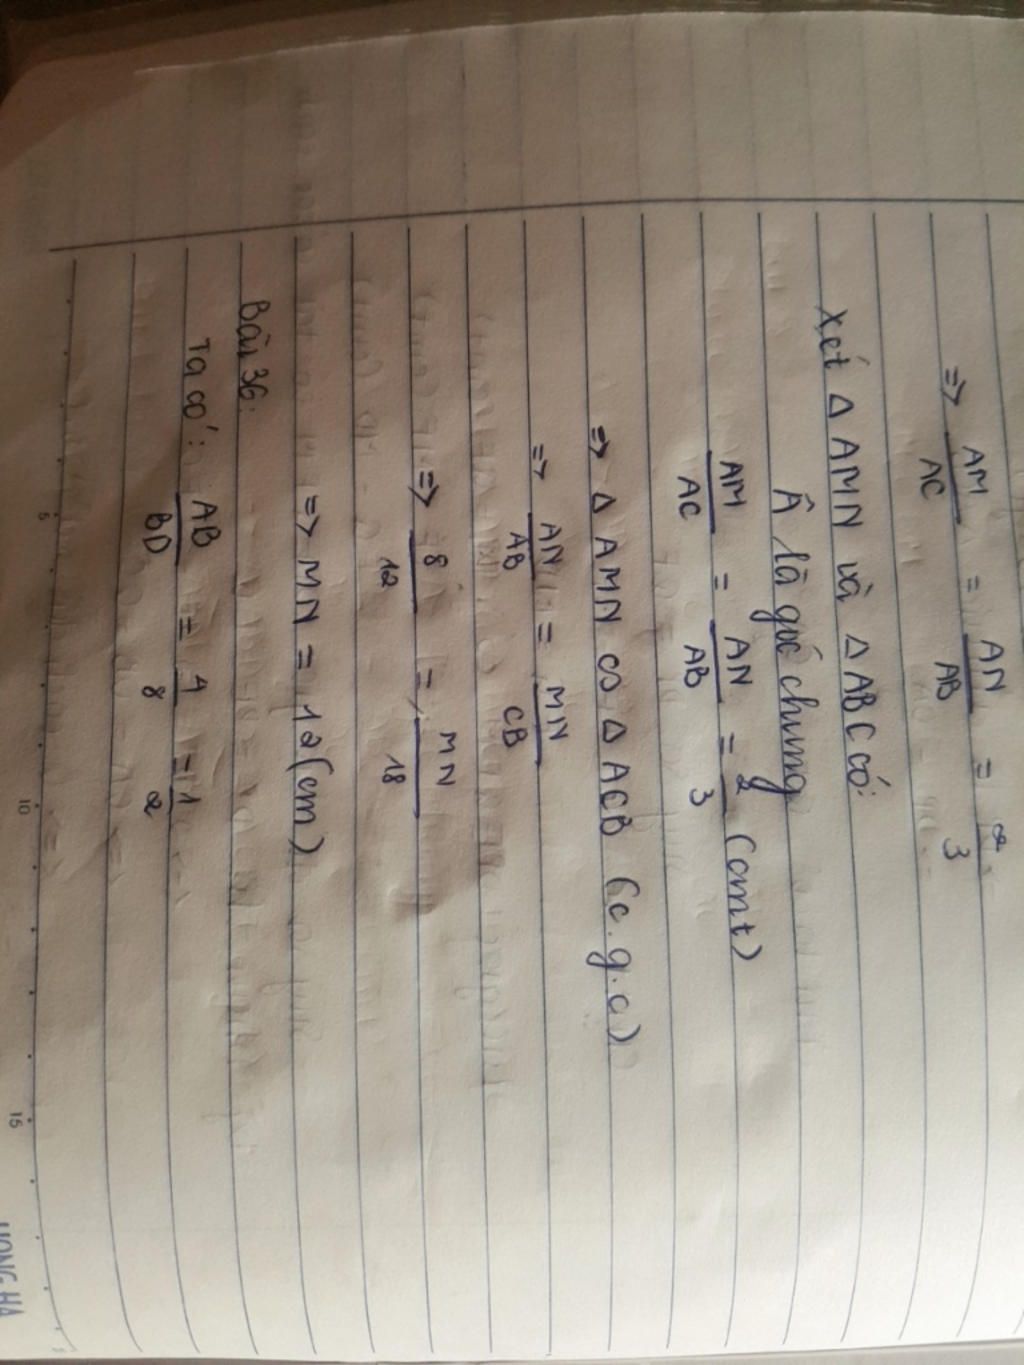 => AM/AC = AN/AB = 2/3
Xét Δ AMN và Δ ABC có:
Â là góc chung
AM/AC = AN/AB = 2/3 (cmt)
=> Δ AMN ∽ Δ ACB (c.g.c)
=> AN/AB = MN/CB
=> 8/12 = MN/18
=> MN = 12 (cm)
Bài 36:
Ta có: AB/BD = 4/8 = 1/2
5 10 15
HONG HA